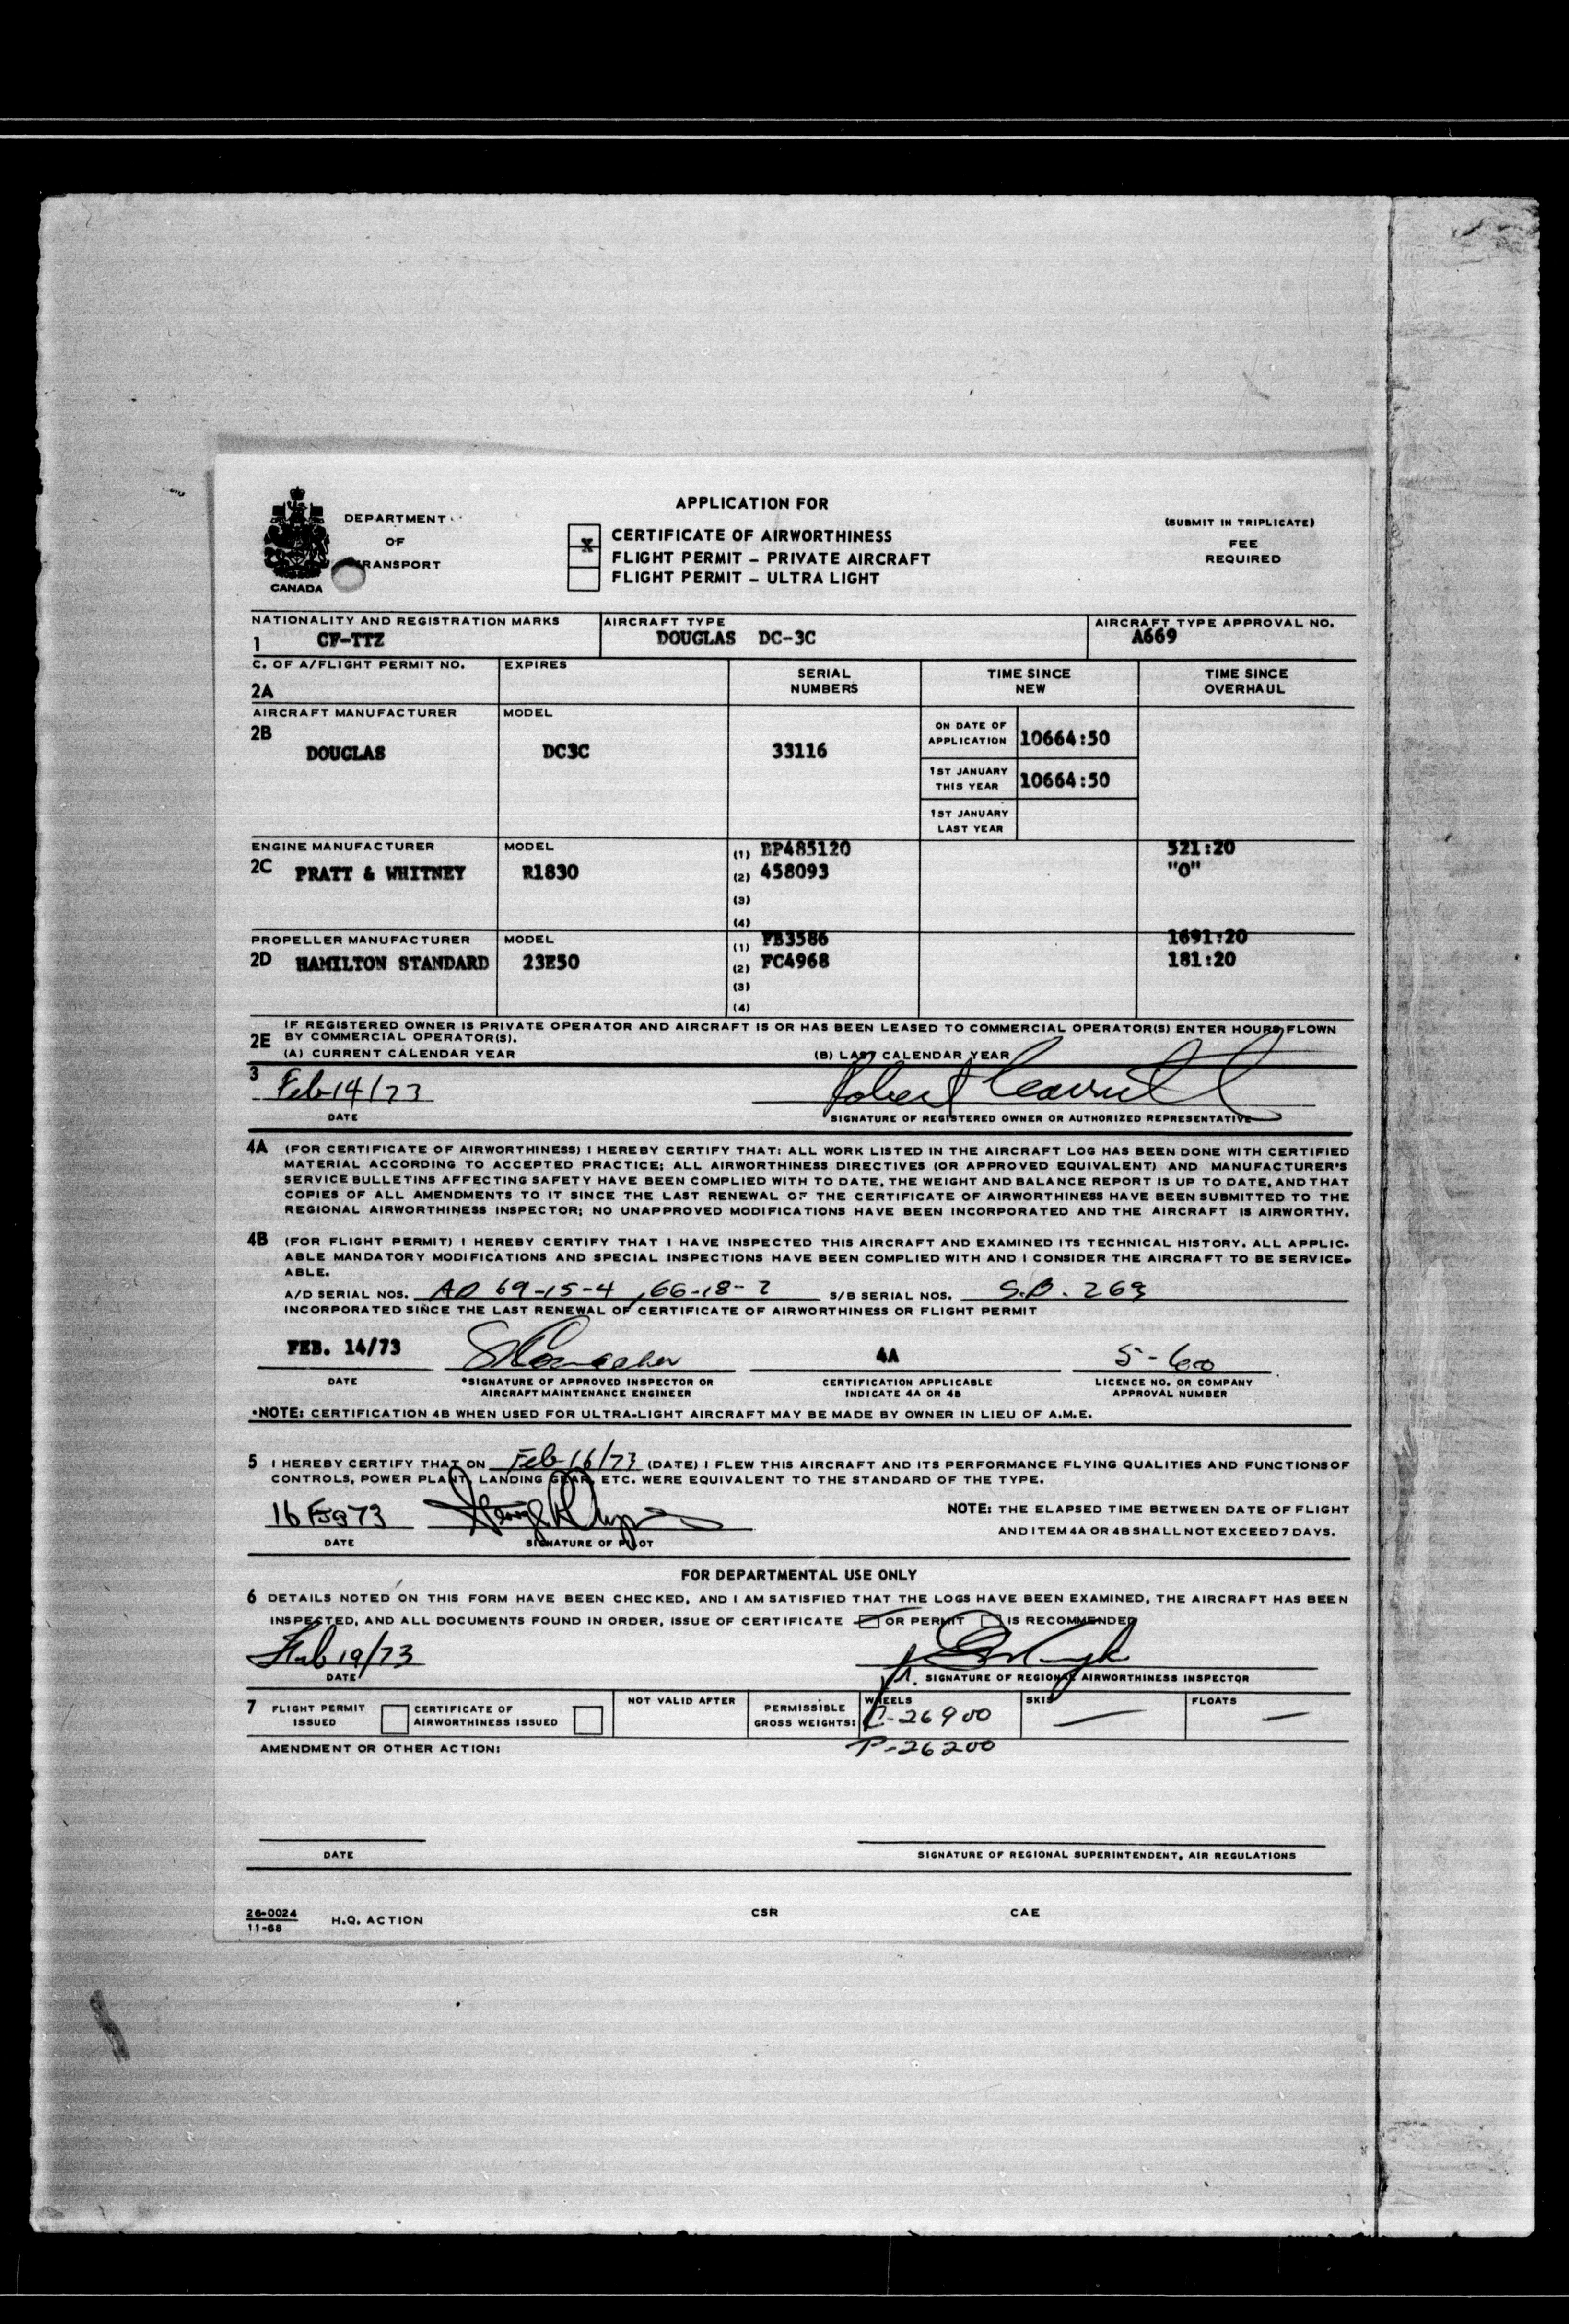 APPLICATION FOR
DEPARTMENT
OF
TRANSPORT
CANADA
X
CERTIFICATE OF AIRWORTHINESS
FLIGHT PERMIT – PRIVATE AIRCRAFT
FLIGHT PERMIT – ULTRA LIGHT
(SUBMIT IN TRIPLICATE)
FEE
REQUIRED
NATIONALITY AND REGISTRATION MARKS AIRCRAFT TYPE AIRCRAFT TYPE APPROVAL NO.
1 CF-TTZ DOUGLAS DC-3C A669
C. OF A/FLIGHT PERMIT NO. EXPIRES SERIAL NUMBERS TIME SINCE NEW TIME SINCE OVERHAUL
2A
AIRCRAFT MANUFACTURER MODEL
2B DOUGLAS DC3C 33116
ON DATE OF APPLICATION 10664:50
1ST JANUARY THIS YEAR 10664:50
1ST JANUARY LAST YEAR
ENGINE MANUFACTURER MODEL (1) BP485120 521:20
2C PRATT & WHITNEY R1830 (2) 458093 "0"
(3)
(4)
PROPELLER MANUFACTURER MODEL (1) FB3586 1691:20
2D HAMILTON STANDARD 23E50 (2) FC4968 181:20
(3)
(4)
2E IF REGISTERED OWNER IS PRIVATE OPERATOR AND AIRCRAFT IS OR HAS BEEN LEASED TO COMMERCIAL OPERATOR(S) ENTER HOURS FLOWN
BY COMMERCIAL OPERATOR(S).
(A) CURRENT CALENDAR YEAR (B) LAST CALENDAR YEAR
3 Feb 14/73 Robert
DATE SIGNATURE OF REGISTERED OWNER OR AUTHORIZED REPRESENTATIVE
4A (FOR CERTIFICATE OF AIRWORTHINESS) I HEREBY CERTIFY THAT: ALL WORK LISTED IN THE AIRCRAFT LOG HAS BEEN DONE WITH CERTIFIED
MATERIAL ACCORDING TO ACCEPTED PRACTICE; ALL AIRWORTHINESS DIRECTIVES (OR APPROVED EQUIVALENT) AND MANUFACTURER'S
SERVICE BULLETINS AFFECTING SAFETY HAVE BEEN COMPLIED WITH TO DATE, THE WEIGHT AND BALANCE REPORT IS UP TO DATE, AND THAT
COPIES OF ALL AMENDMENTS TO IT SINCE THE LAST RENEWAL OF THE CERTIFICATE OF AIRWORTHINESS HAVE BEEN SUBMITTED TO THE
REGIONAL AIRWORTHINESS INSPECTOR; NO UNAPPROVED MODIFICATIONS HAVE BEEN INCORPORATED AND THE AIRCRAFT IS AIRWORTHY.
4B (FOR FLIGHT PERMIT) I HEREBY CERTIFY THAT I HAVE INSPECTED THIS AIRCRAFT AND EXAMINED ITS TECHNICAL HISTORY. ALL APPLIC-
ABLE MANDATORY MODIFICATIONS AND SPECIAL INSPECTIONS HAVE BEEN COMPLIED WITH AND I CONSIDER THE AIRCRAFT TO BE SERVICE-
ABLE.
A/D SERIAL NOS. AD 69-15-4, 66-18-2 S/B SERIAL NOS. S.B. 269
INCORPORATED SINCE THE LAST RENEWAL OF CERTIFICATE OF AIRWORTHINESS OR FLIGHT PERMIT
FEB. 14/73 4A 5-600
DATE *SIGNATURE OF APPROVED INSPECTOR OR CERTIFICATION APPLICABLE LICENCE NO. OR COMPANY
AIRCRAFT MAINTENANCE ENGINEER INDICATE 4A OR 4B APPROVAL NUMBER
*NOTE: CERTIFICATION 4B WHEN USED FOR ULTRA-LIGHT AIRCRAFT MAY BE MADE BY OWNER IN LIEU OF A.M.E.
5 I HEREBY CERTIFY THAT ON Feb 16/73 (DATE) I FLEW THIS AIRCRAFT AND ITS PERFORMANCE FLYING QUALITIES AND FUNCTIONS OF
CONTROLS, POWER PLANT, LANDING GEAR, ETC. WERE EQUIVALENT TO THE STANDARD OF THE TYPE.
16 FEB 73 NOTE: THE ELAPSED TIME BETWEEN DATE OF FLIGHT
AND ITEM 4A OR 4B SHALL NOT EXCEED 7 DAYS.
DATE SIGNATURE OF PILOT
FOR DEPARTMENTAL USE ONLY
6 DETAILS NOTED ON THIS FORM HAVE BEEN CHECKED, AND I AM SATISFIED THAT THE LOGS HAVE BEEN EXAMINED, THE AIRCRAFT HAS BEEN
INSPECTED, AND ALL DOCUMENTS FOUND IN ORDER, ISSUE OF CERTIFICATE OR PERMIT IS RECOMMENDED
Feb 19/73
DATE SIGNATURE OF REGIONAL AIRWORTHINESS INSPECTOR
7 FLIGHT PERMIT ISSUED CERTIFICATE OF AIRWORTHINESS ISSUED NOT VALID AFTER PERMISSIBLE GROSS WEIGHTS: WHEELS C-26900 SKIS — FLOATS —
P-26200
AMENDMENT OR OTHER ACTION:
DATE SIGNATURE OF REGIONAL SUPERINTENDENT, AIR REGULATIONS
26-0024
11-68 H.Q. ACTION CSR CAE